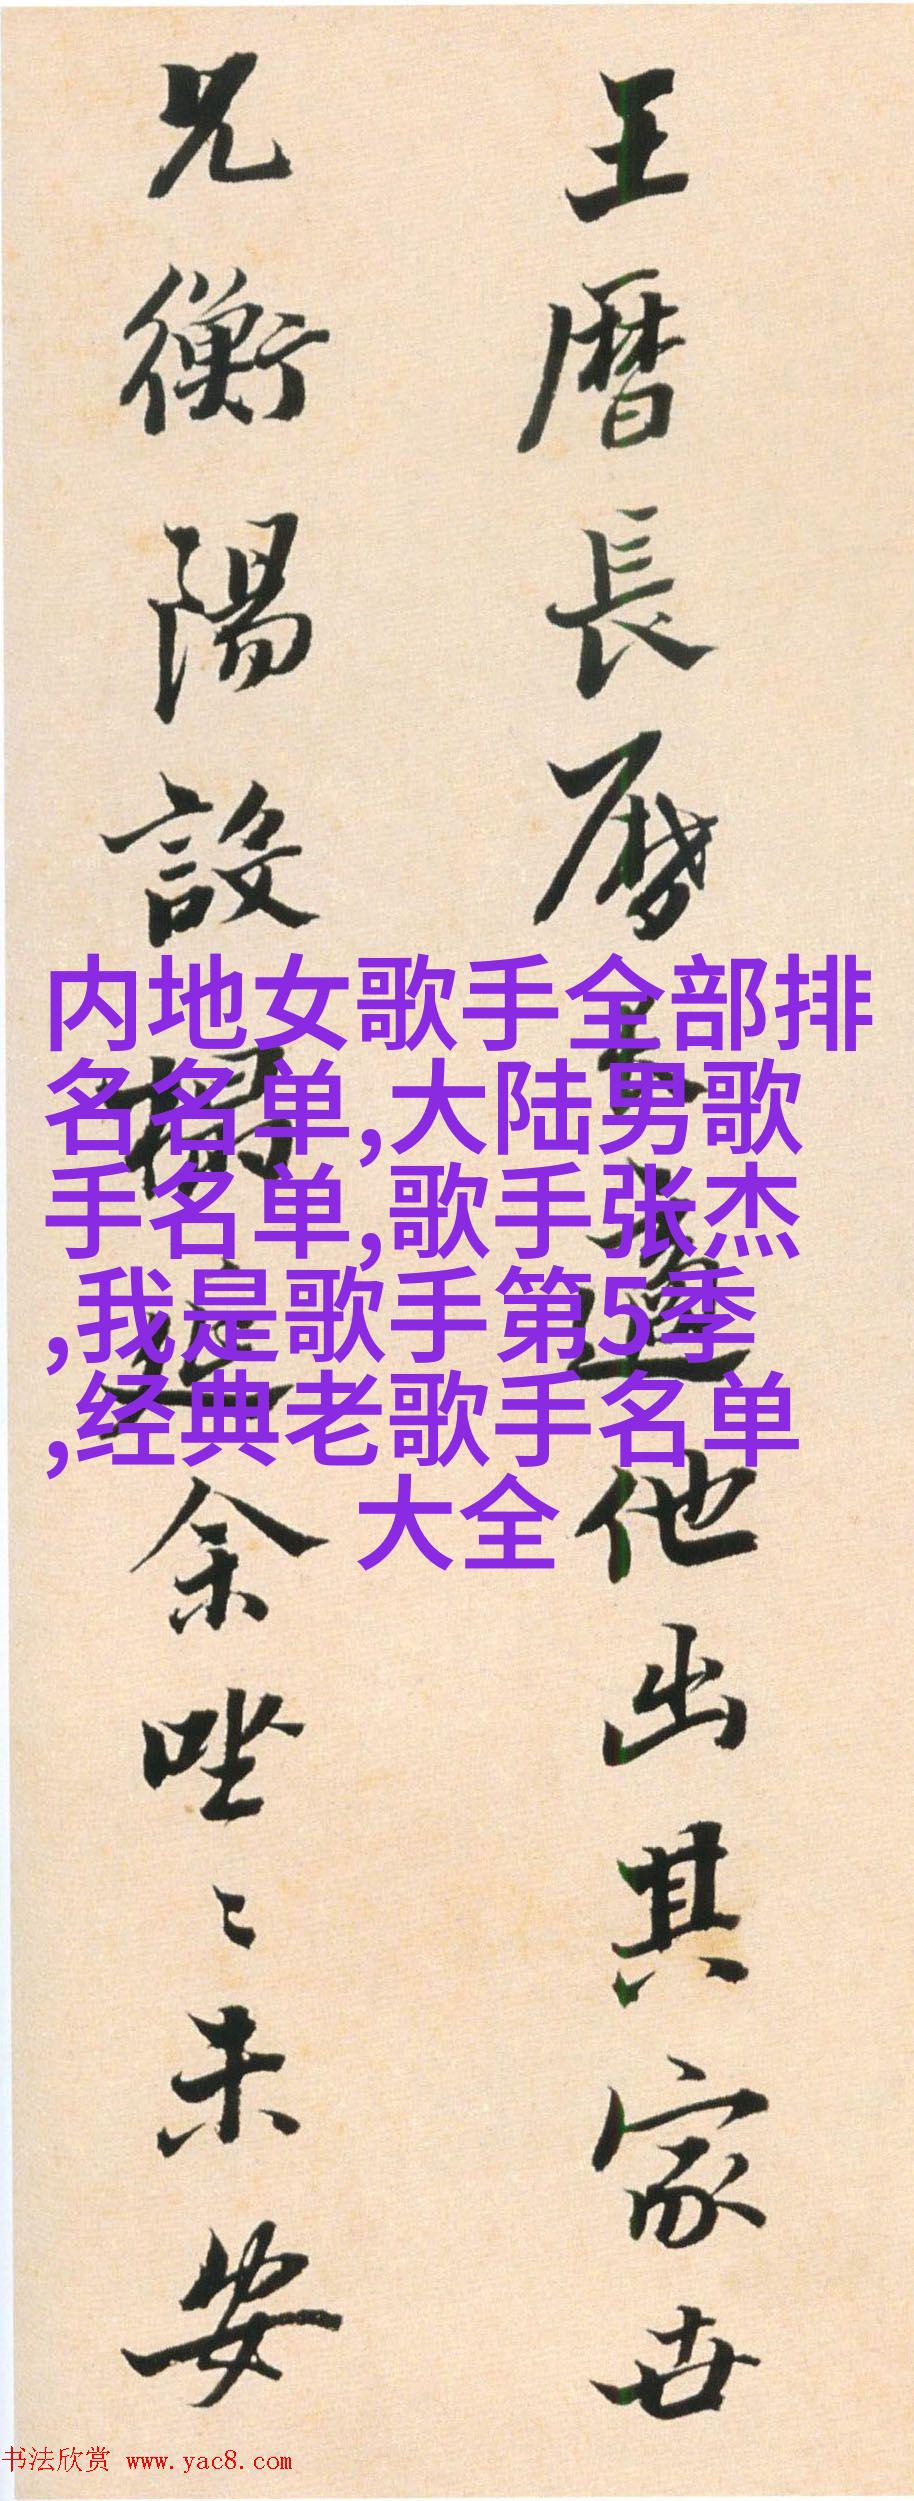 王曆長曆
他出其家世
兄衡陽設榻延余唑〻未安
内地女歌手全部排
名名单,大陆男歌
手名单,歌手张杰
,我是歌手第5季
,经典老歌手名单
大全
书法欣赏 www.yac8.com